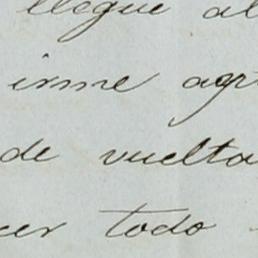 llegue al
irme agr
de vuelta
cer todo